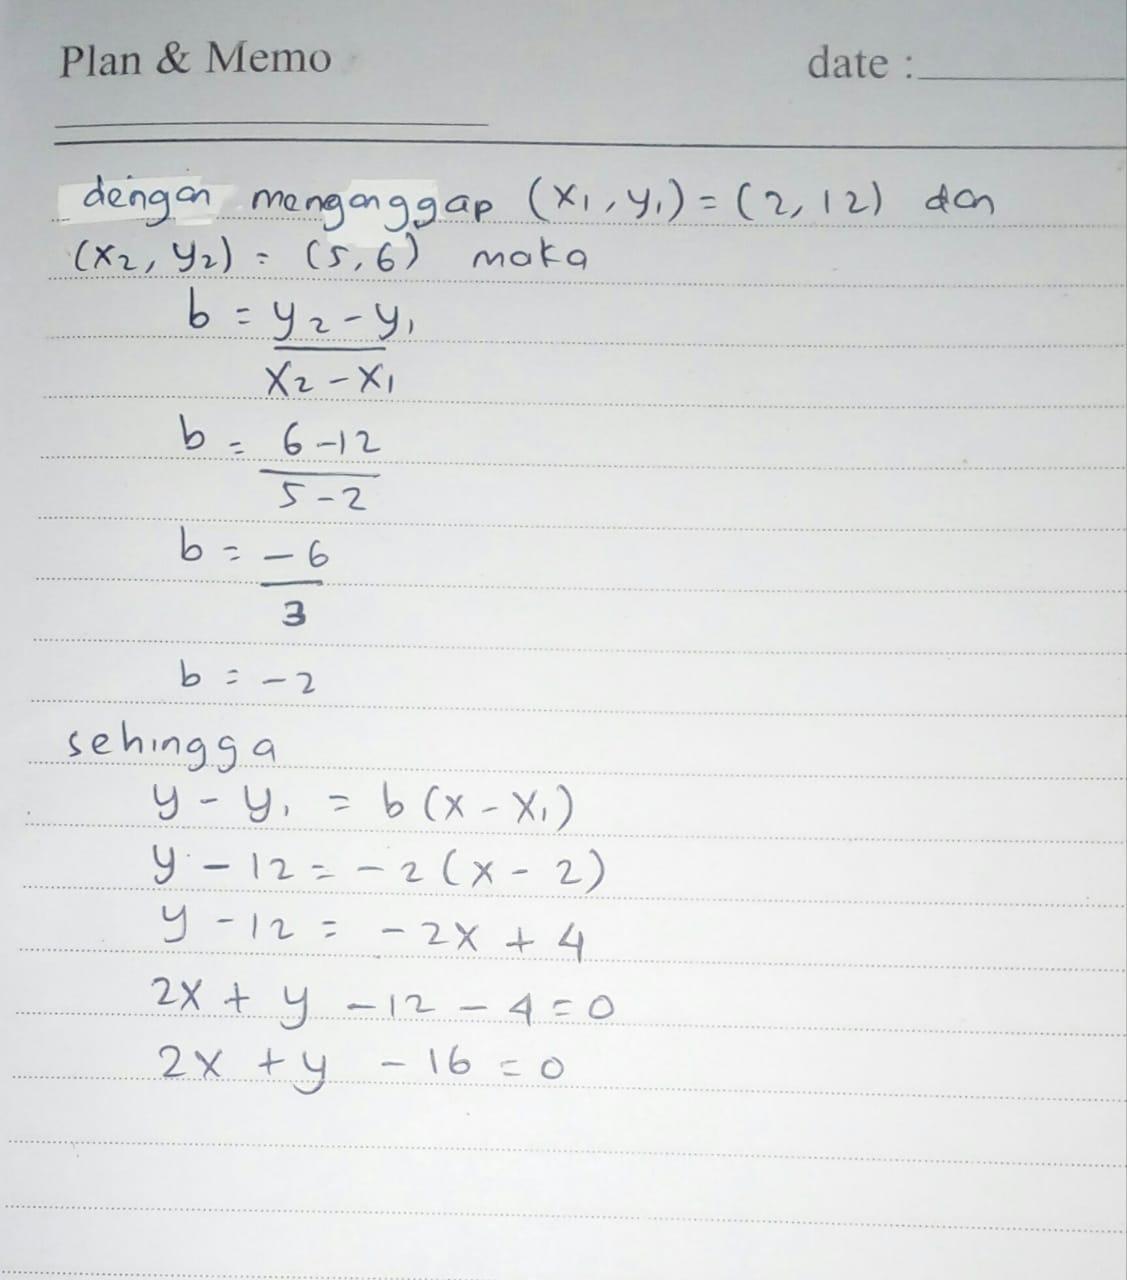 Plan & Memo
date :
dengan menganggap (x₁, y₁) = (2, 12) dan
(x₂, y₂) = (5, 6) maka
b = y₂ - y₁
x₂ - x₁
b = 6 - 12
5 - 2
b = - 6
3
b = - 2
sehingga
y - y₁ = b (x - x₁)
y - 12 = - 2 (x - 2)
y - 12 = - 2x + 4
2x + y - 12 - 4 = 0
2x + y - 16 = 0